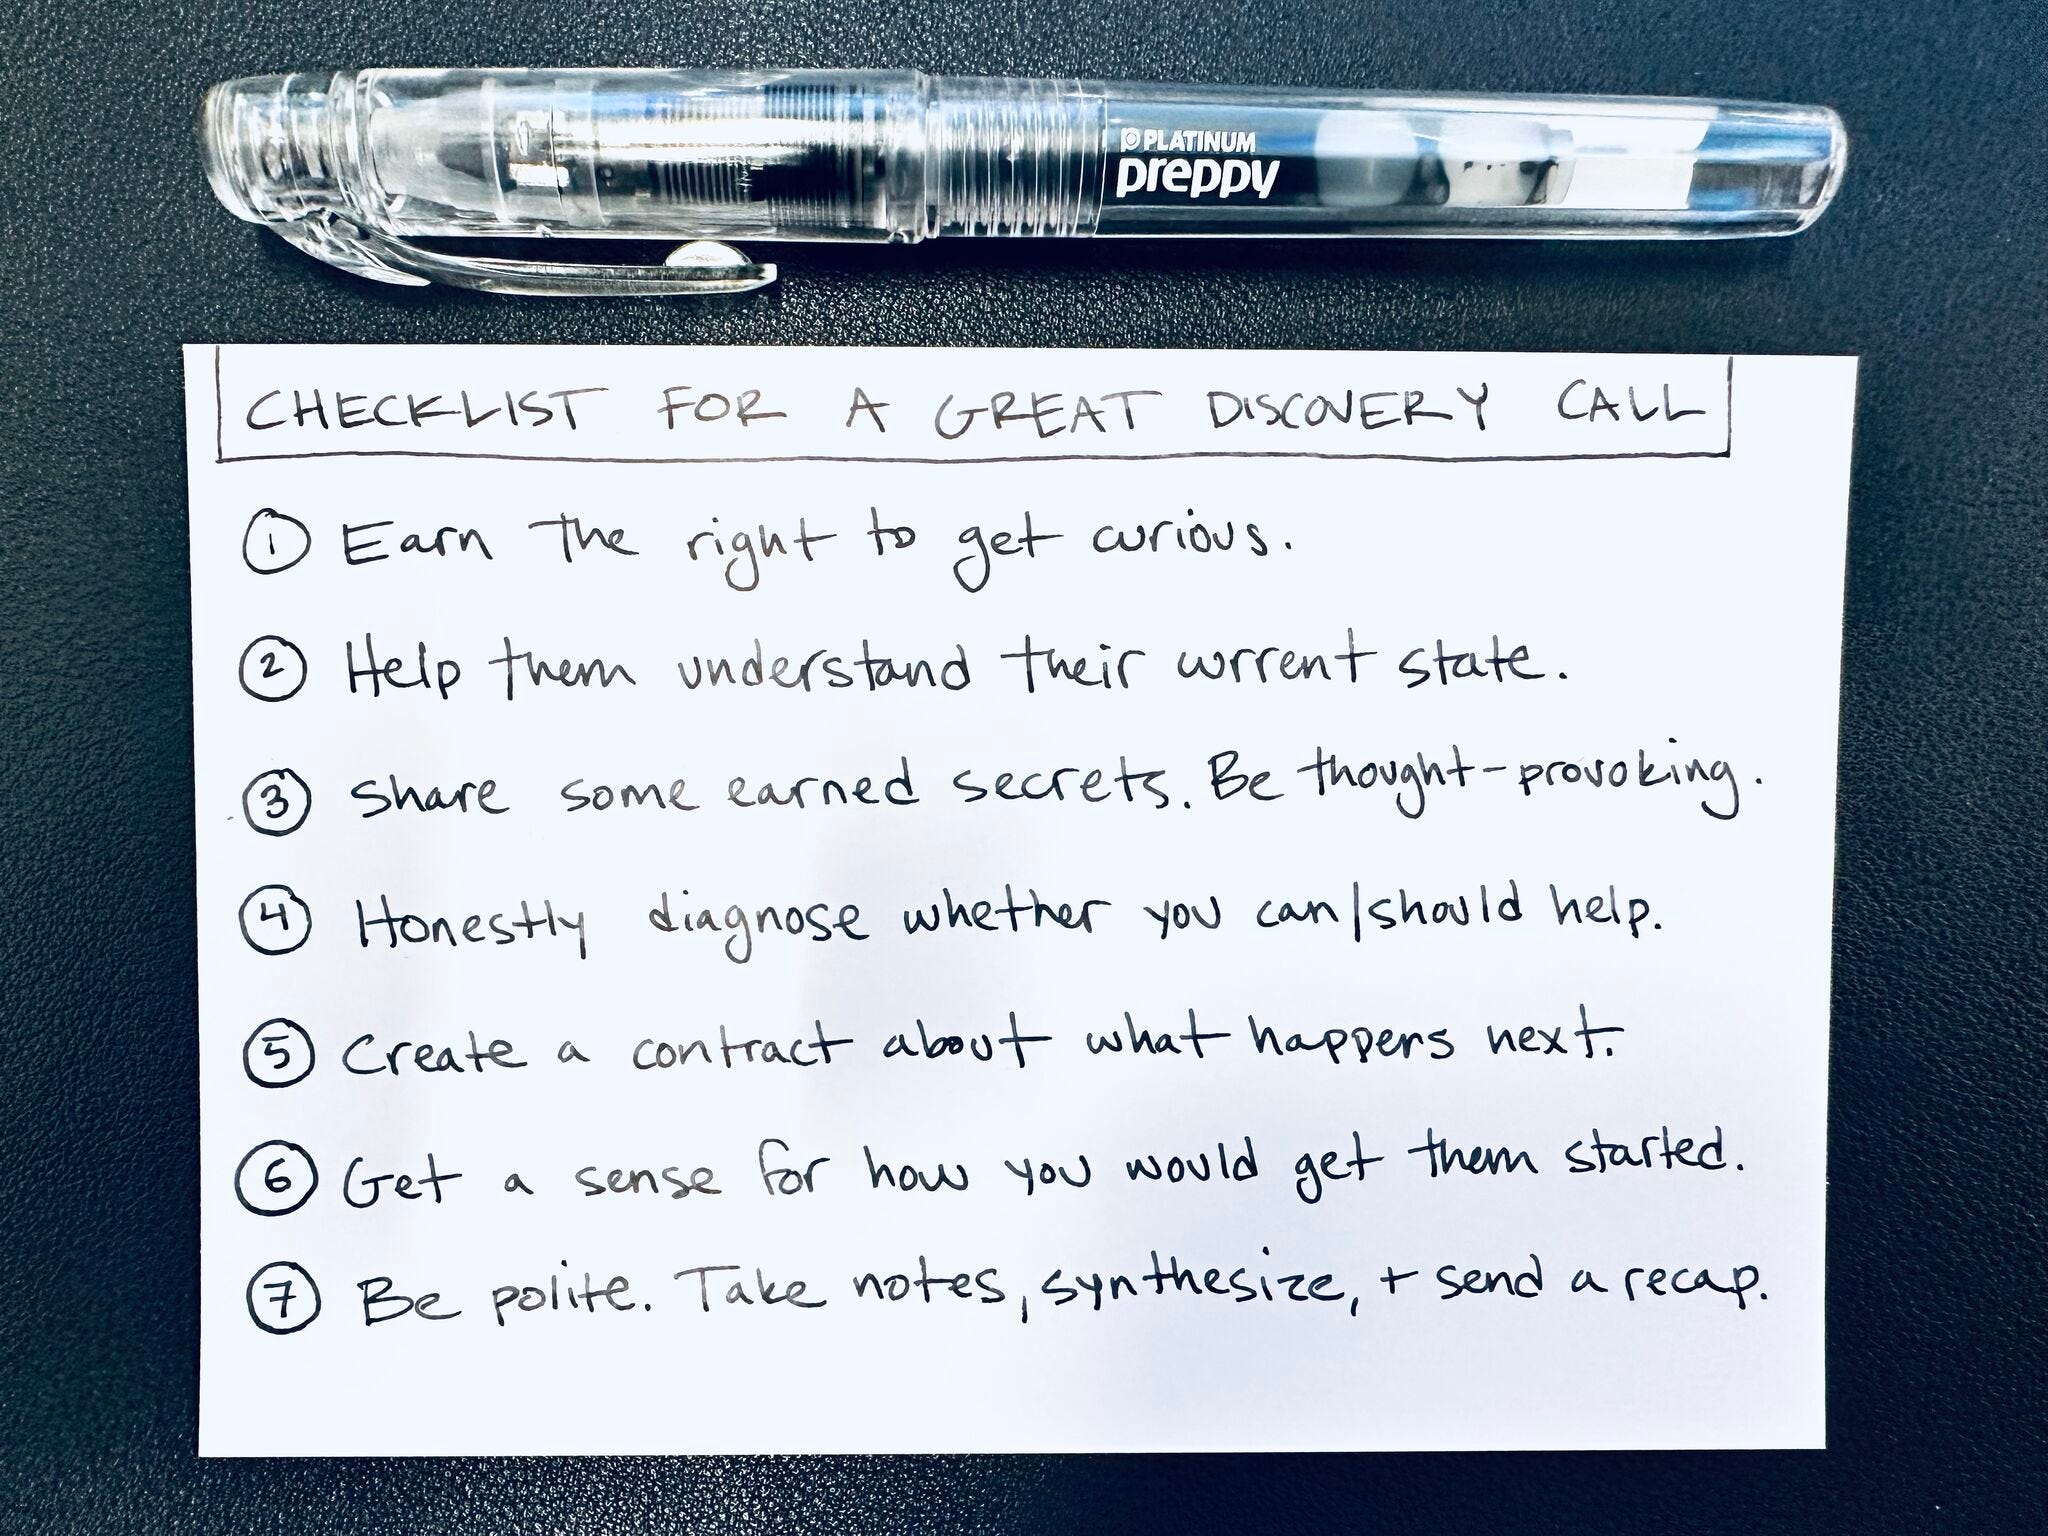 PLATINUM
preppy
CHECKLIST FOR A GREAT DISCOVERY CALL
1 Earn the right to get curious.
2 Help them understand their current state.
3 Share some earned secrets. Be thought-provoking.
4 Honestly diagnose whether you can/should help.
5 Create a contract about what happens next.
6 Get a sense for how you would get them started.
7 Be polite. Take notes, synthesize, + send a recap.